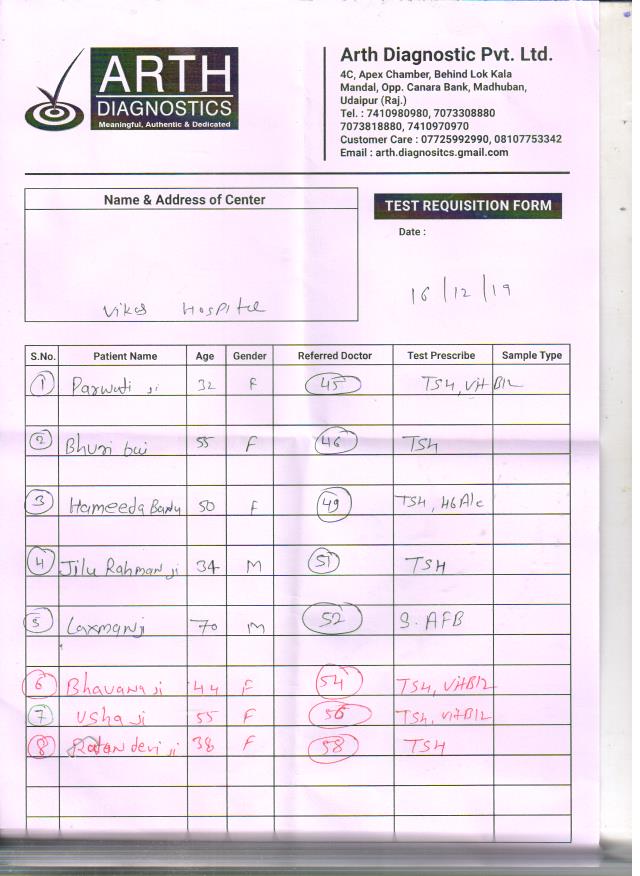 ARTH
DIAGNOSTICS
Meaningful, Authentic & Dedicated
Arth Diagnostic Pvt. Ltd.
4C, Apex Chamber, Behind Lok Kala
Mandal, Opp. Canara Bank, Madhuban,
Udaipur (Raj.)
Tel. : 7410980980, 7073308880
7073818880, 7410970970
Customer Care : 07725992990, 08107753342
Email : arth.diagnositcs.gmail.com
Name & Address of Center
Vikas Hospital
TEST REQUISITION FORM
Date :
16/12/19
S.No. Patient Name Age Gender Referred Doctor Test Prescribe Sample Type
1 Parwati ji 32 F 45 TSH, Vit B12
2 Bhuri bai 55 F 46 TSH
3 Hameeda Banu 50 F 49 TSH, HbA1c
4 Jilu Rahman ji 34 M 51 TSH
5 Laxmanji 70 M 52 S. AFB
6 Bhavana ji 44 F 54 TSH, VitB12
7 Usha ji 55 F 56 TSH, VitB12
8 Ratan devi ji 38 F 58 TSH